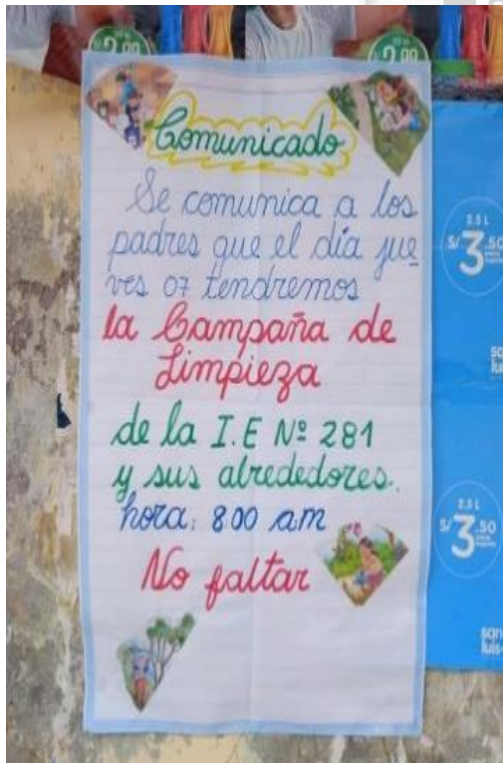 2.00
2.00
Comunicado
Se comunica a los
padres que el día jue
ves 07 tendremos
la Campaña de
Limpieza
de la I.E Nº 281
y sus alrededores.
hora: 800 am
No faltar
2.5 L
S/ 3.50
san
luis
2.5 L
S/ 3.50
san
luis